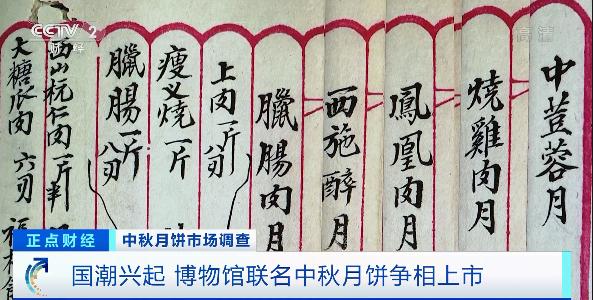 CCTV 2
财经
高清
中荳蓉月
燒雞肉月
鳳凰肉月
西施醉月
臘腸肉月
上肉一斤
瘦叉燒一斤
臘腸一斤
仁肉一斤半
大糖瓜肉 六刃
正点财经 中秋月饼市场调查
国潮兴起 博物馆联名中秋月饼争相上市